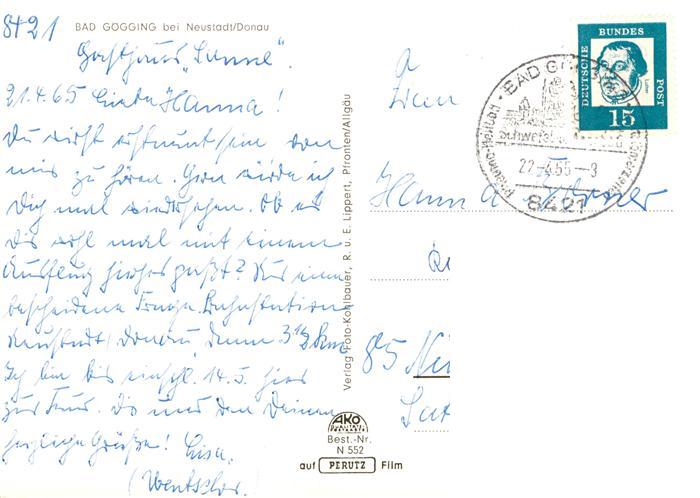 8421 BAD GÖGGING bei Neustadt/Donau
Gasthaus „Sonne“.
21.4.65 Liebe Hanna!
Du wirst erstaunt sein von
mir zu hören. Gern würde ich
Dich mal wiedersehen. Ob es
Dir wohl mal mit einem
Ausflug hierher paßt? Nur eine
bescheidene Frage. Bahnstation
Neustadt/Donau dann 3 1/2 km
Ich bin bis einschl. 14.5. hier
zur Kur. Dir und den Deinen
herzliche Grüße! Lisa.
(Wentschor.)
Verlag Foto-Kohlbauer, R. u. E. Lippert, Pfronten/Allgäu
AKO
Best.-Nr.
N 552
auf PERUTZ Film
DEUTSCHE BUNDES POST
Luther
15
BAD GÖGGING
Schwefel
22.-4.65-3
8421
Hanna
85